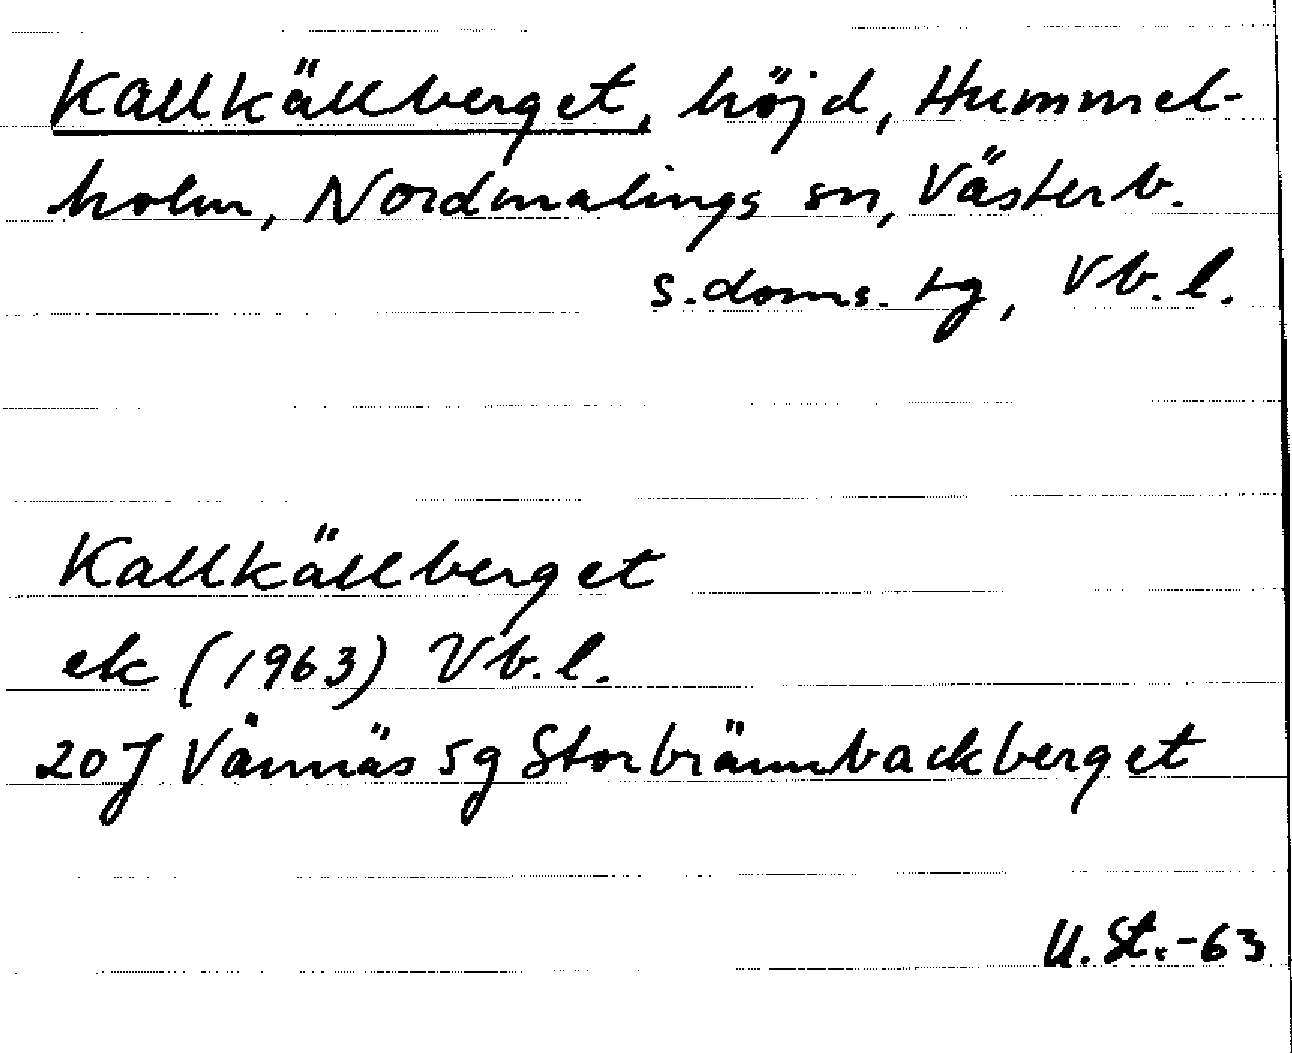 Kallkällberget, höjd, Hummel-
holm, Nordmalings sn, Västerb.
s. doms. tg, Vb. l.
Kallkällberget
ek (1963) Vb. l.
20 J Vännäs 5g Storbrännbackberget
U. St. -63